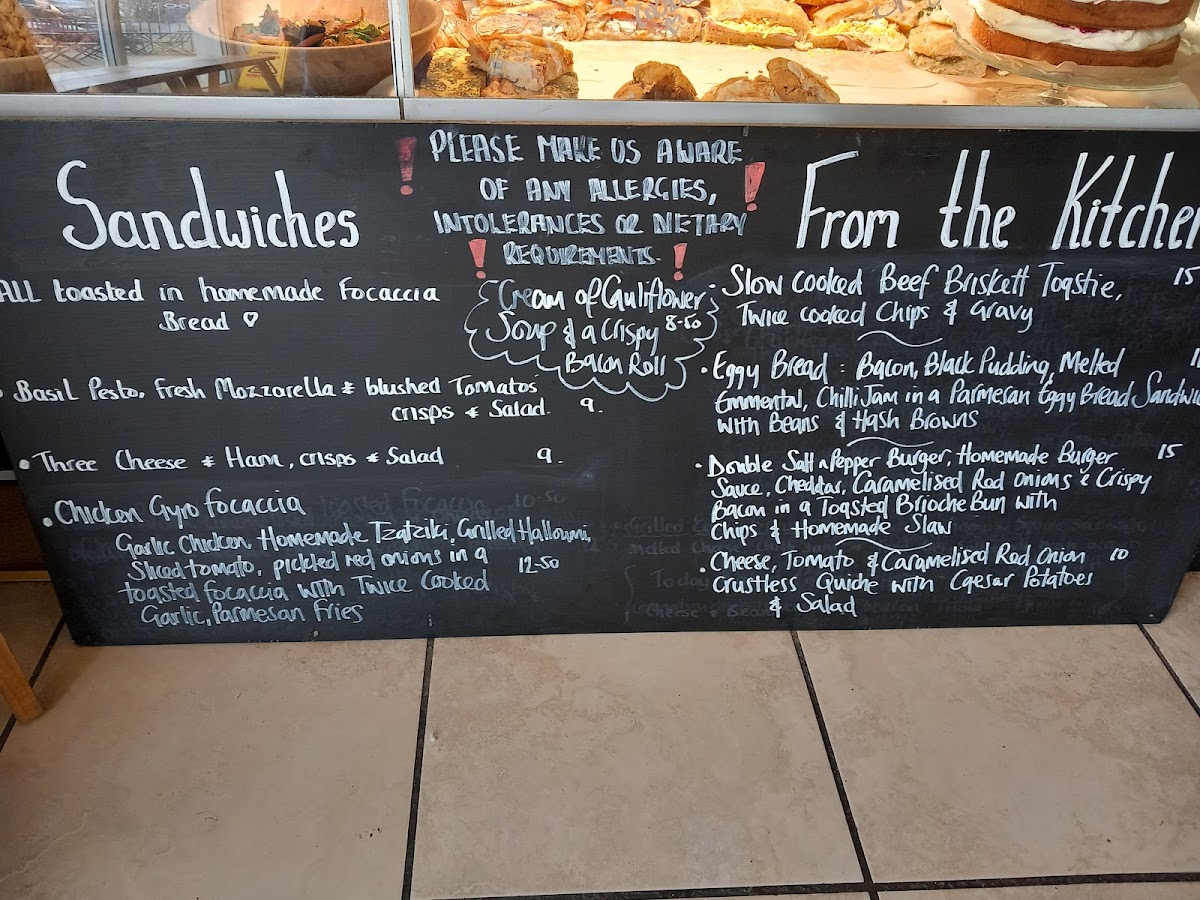 Sandwiches
ALL toasted in homemade Focaccia
Bread ♡
Basil Pesto, Fresh Mozzarella & blushed Tomatos
crisps & Salad. 9.
• Three Cheese & Ham, crisps & Salad 9.
• Chicken Gyro focaccia
Garlic Chicken, Homemade Tzatziki, Grilled Halloumi,
Sliced tomato, pickled red onions in a
toasted focaccia with Twice Cooked 12-50
Garlic, Parmesan Fries
! PLEASE MAKE US AWARE
OF ANY ALLERGIES, !
INTOLERANCES OR DIETARY
! REQUIREMENTS. !
Cream of Cauliflower
Soup & a Crispy 8-50
Bacon Roll
From the Kitchen
• Slow Cooked Beef Briskett Toastie, 15
Twice cooked Chips & Gravy
• Eggy Bread : Bacon, Black Pudding, Melted
Emmental, Chilli Jam in a Parmesan Eggy Bread
with Beans & Hash Browns
• Double Salt n Pepper Burger, Homemade Burger 15
Sauce, Cheddar, Caramelised Red Onions & Crispy
Bacon in a Toasted Brioche Bun with
Chips & Homemade Slaw
• Cheese, Tomato & Caramelised Red Onion 10
Crustless Quiche with Caesar Potatoes
& Salad